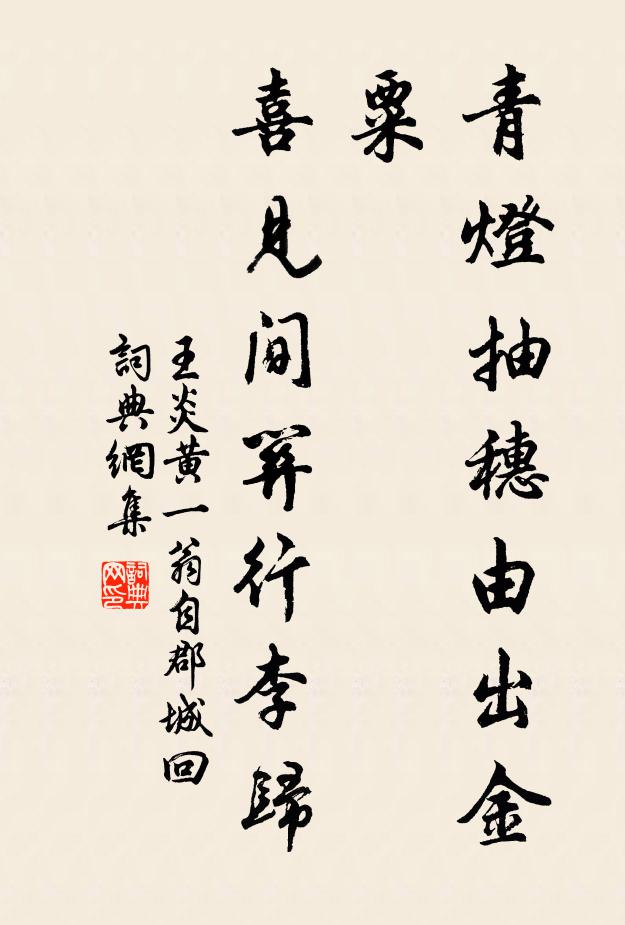 青燈抽穗由出金
粟
喜見間關行李歸
王炎黃一翁自郡城回
詞典網集
詞典网印